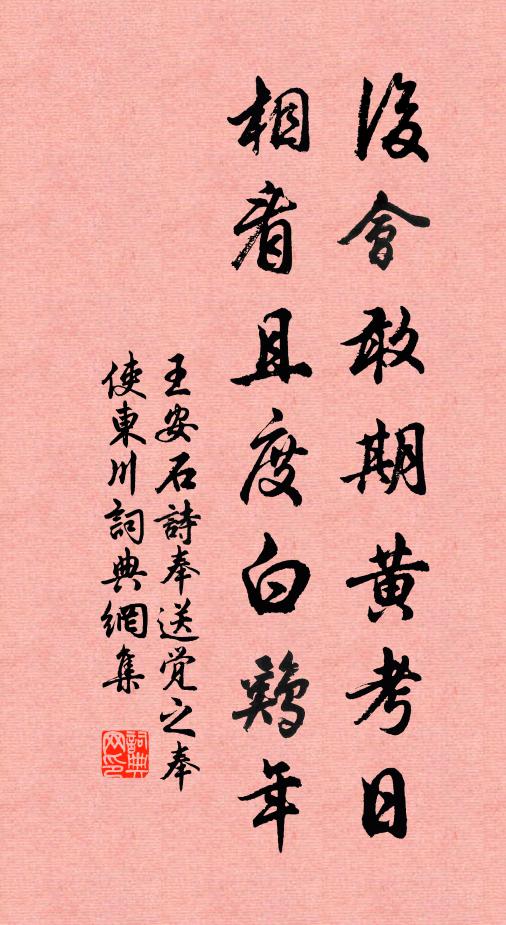 後會敢期黃考日
相看且度白鷄年
王安石詩奉送覚之奉
使東川詞典網集
詞典
网印